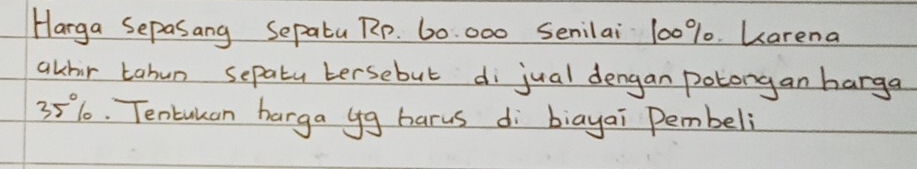 Harga Sepasang Sepatu Rp. 60.000 Senilai 100%. Karena
akhir tahun sepatu tersebut di jual dengan potongan harga
35%. Tentukan harga yg harus di biayai Pembeli